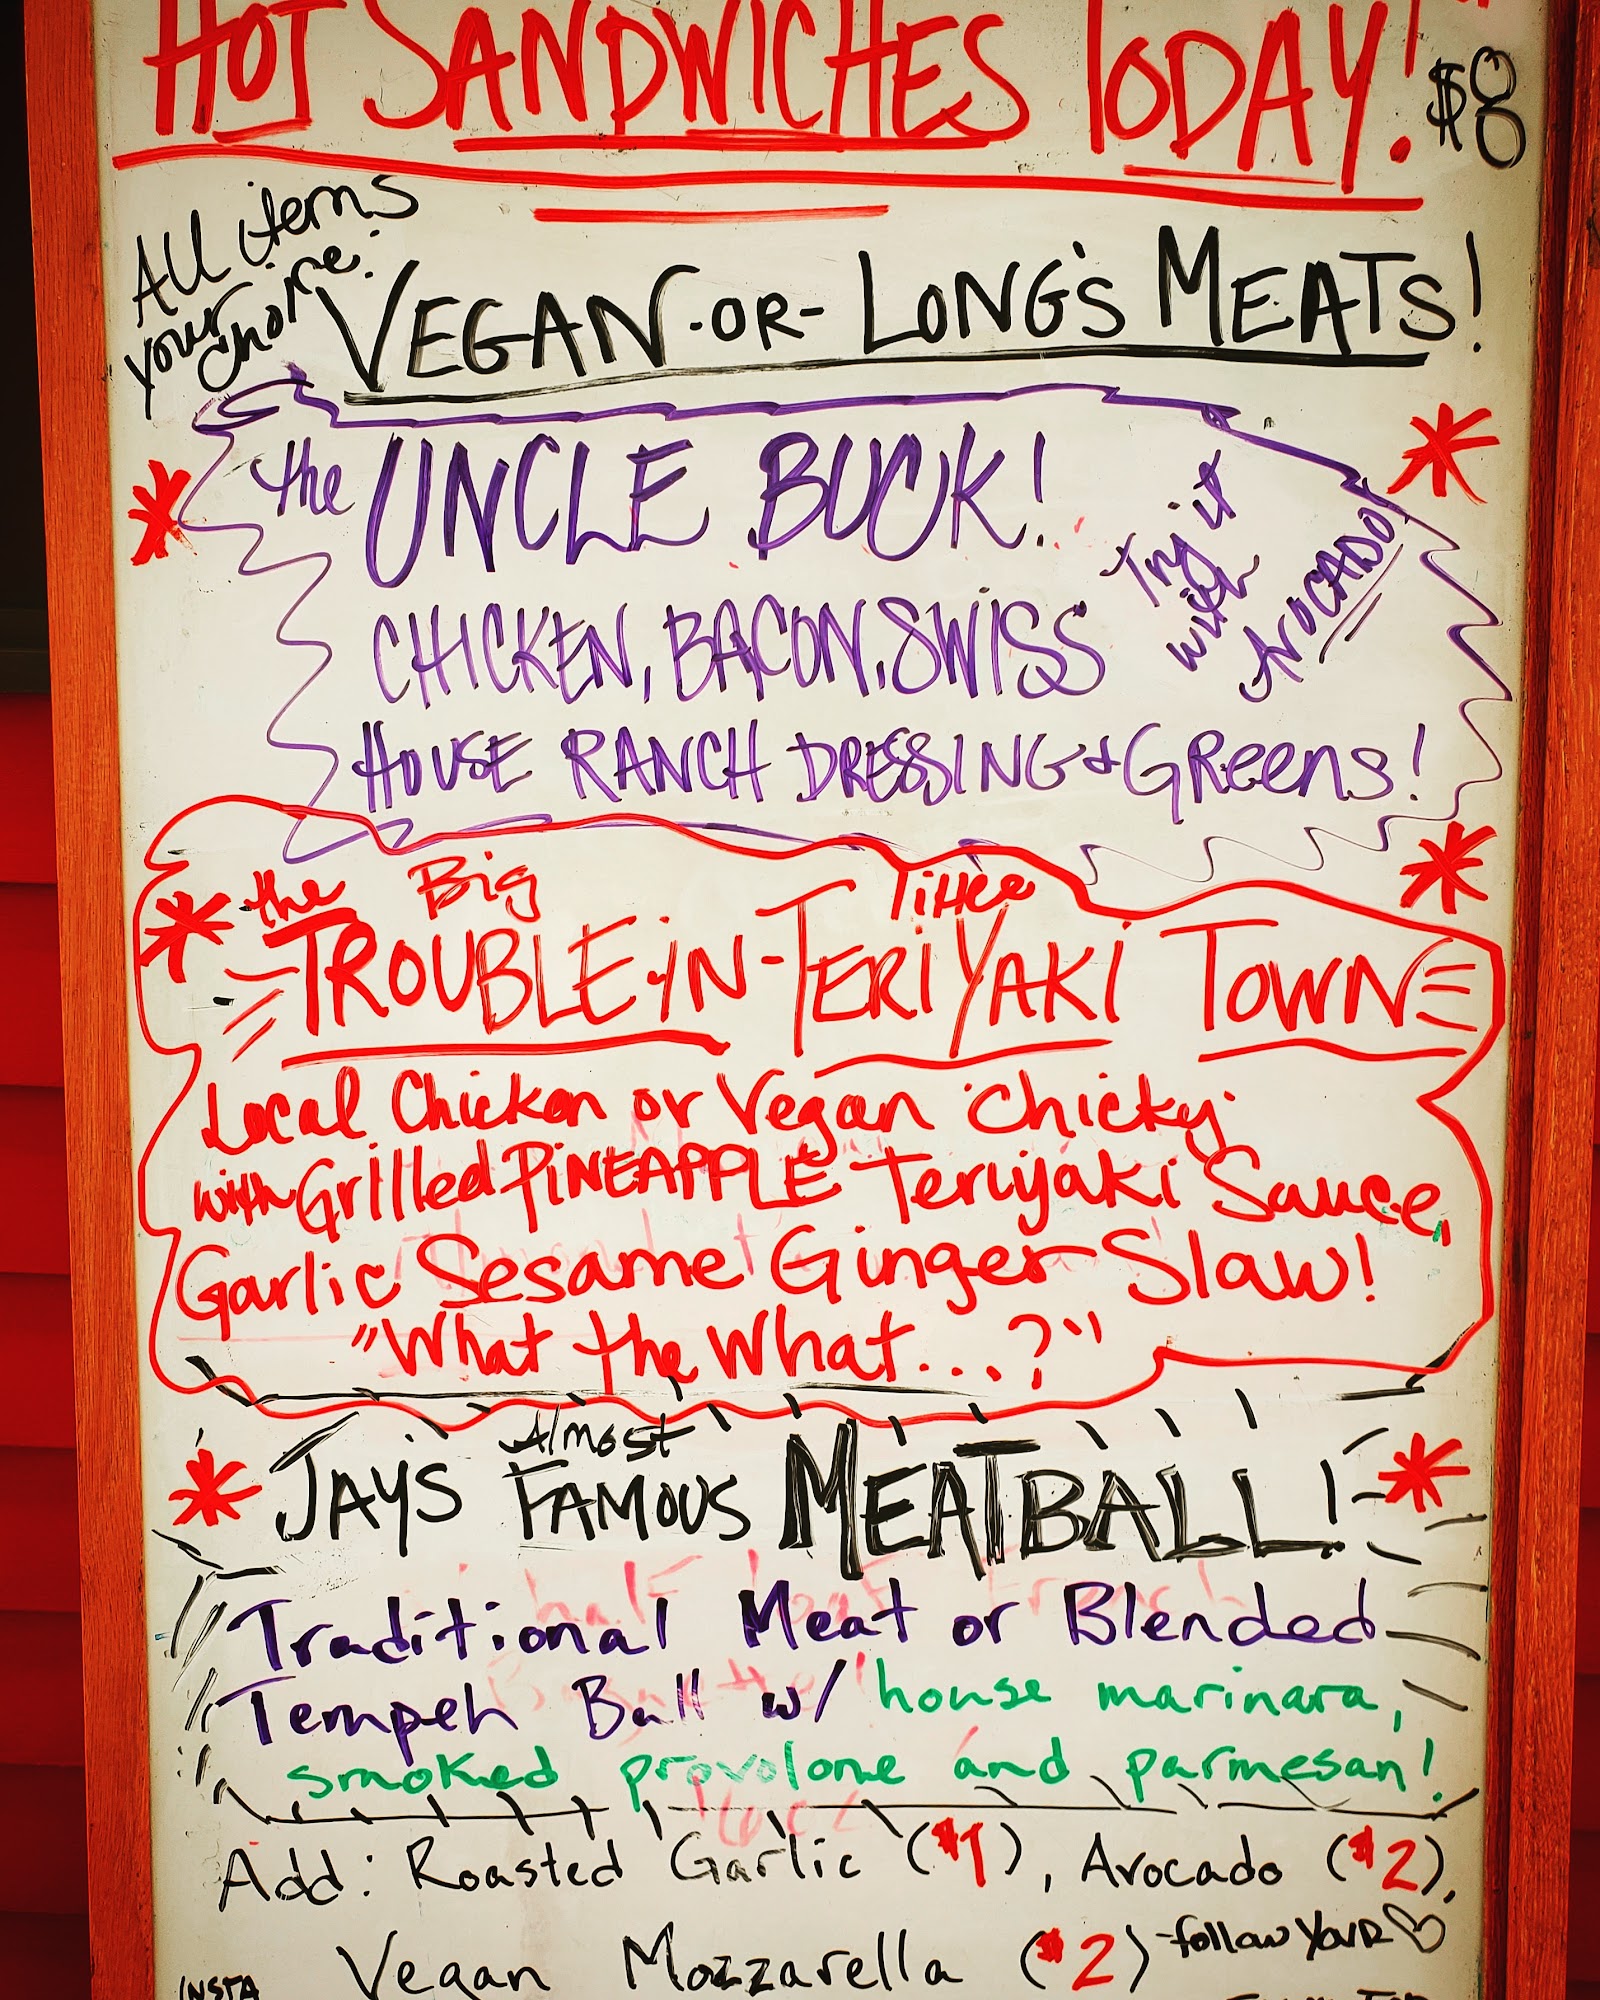 HOT SANDWICHES TODAY! $8
All items
your
choice:
VEGAN -OR- LONG'S MEATS!
the UNCLE BUCK!
Try it
with
AVOCADO!
CHICKEN, BACON, SWISS
HOUSE RANCH DRESSING & GREENS!
the Big Little
TROUBLE-IN-TERIYAKI TOWN
Local Chicken or Vegan Chicky
with Grilled PINEAPPLE Teriyaki Sauce,
Garlic Sesame Ginger Slaw!
"What the What...?"
Almost
JAY'S FAMOUS MEATBALL!
Traditional Meat or Blended
Tempeh Ball w/ house marinara,
smoked provolone and parmesan!
Add: Roasted Garlic ($1), Avocado ($2),
Vegan Mozzarella ($2) -follow your ♡
INSTA